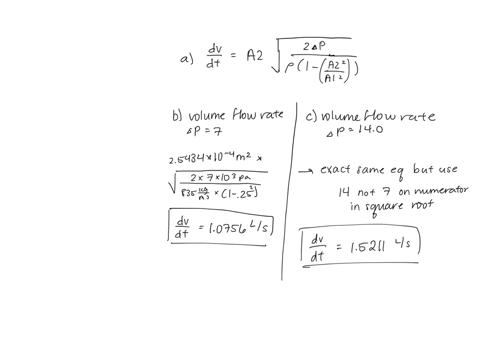 a) dv/dt = A2 √(2ΔP / ρ(1-(A2²/A1²)))
b) volume flow rate
ΔP = 7
2.5434 × 10⁻⁴ m² ×
√(2 × 7 × 10³ Pa / 835 kg/m³ × (1-.25²))
dv/dt = 1.0756 L/s
c) volume flow rate
ΔP = 14.0
→ exact same eq but use
14 not 7 on numerator
in square root
dv/dt = 1.5211 L/s